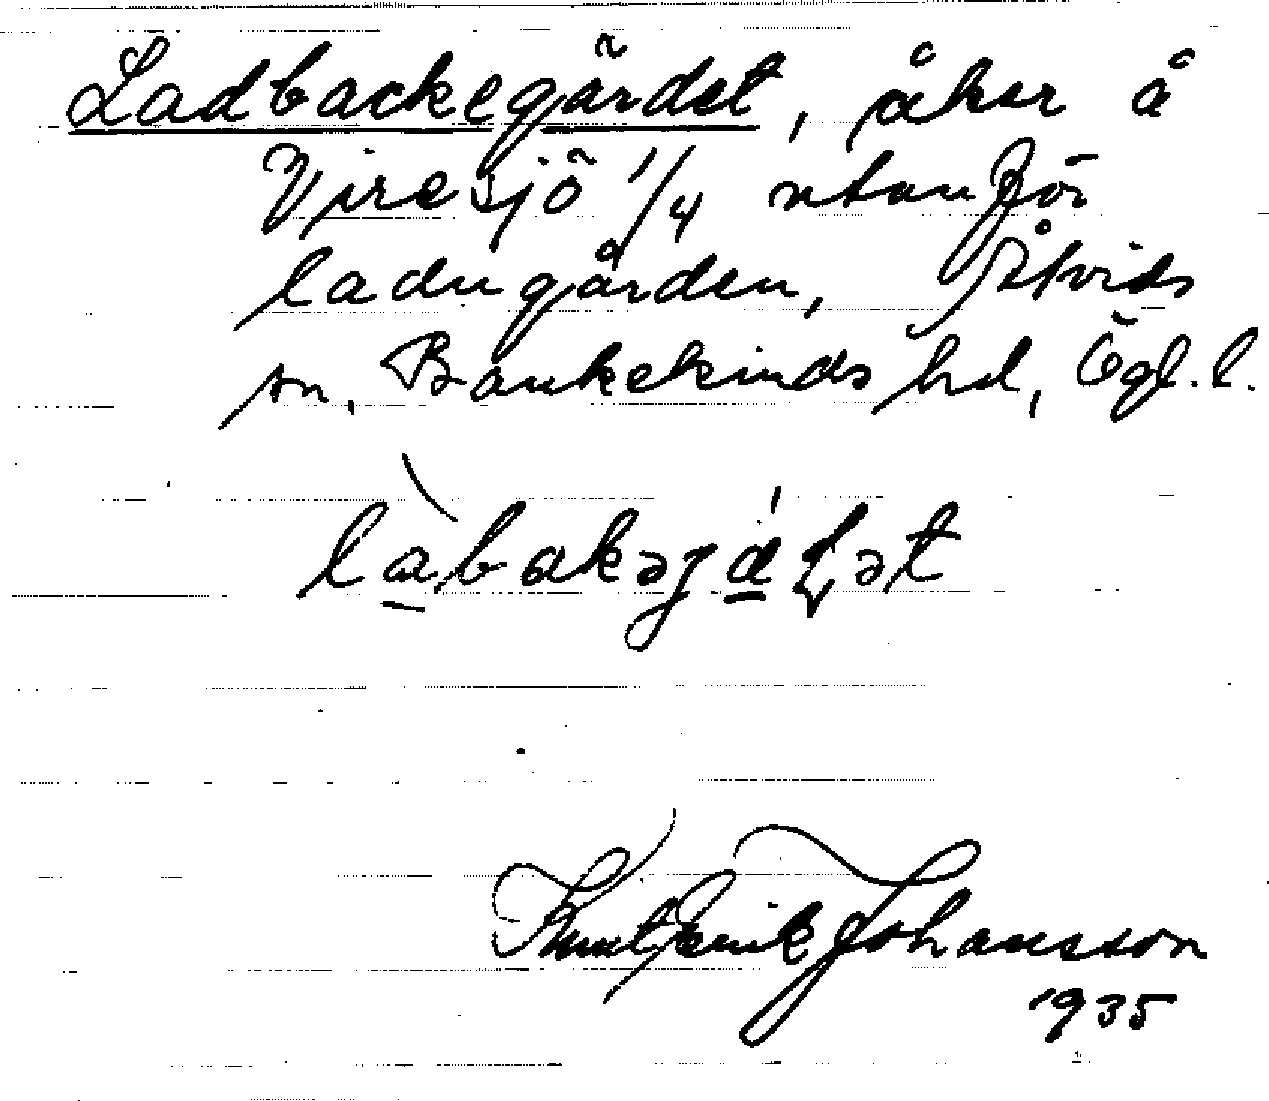 Ladbackegärdet, åker å
Viresjö 1/4 utanför
ladugården, Åtvids
sn, Bankekinds hd, Ögl. l.
Knut Erik Johansson
1935